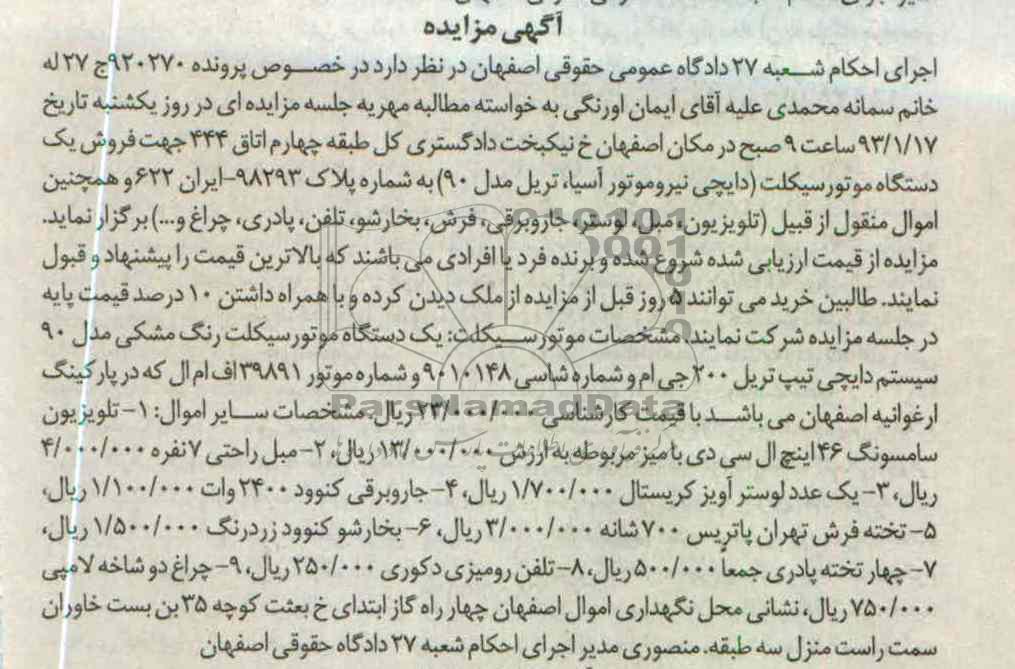 آگهی مزایده
اجرای احکام شعبه ۲۷ دادگاه عمومی حقوقی اصفهان در نظر دارد در خصوص پرونده ۹۲۰۲۷۰ج ۲۷ له
خانم سمانه محمدی علیه آقای ایمان اورنگی به خواسته مطالبه مهریه جلسه مزایده ای در روز یکشنبه تاریخ
۹۳/۱/۱۷ ساعت ۹ صبح در مکان اصفهان خ نیکبخت دادگستری کل طبقه چهارم اتاق ۴۴۴ جهت فروش یک
دستگاه موتورسیکلت (دایچی نیروموتور آسیا، تریل مدل ۹۰) به شماره پلاک ۹۸۲۹۳-ایران ۶۲۲ و همچنین
اموال منقول از قبیل (تلویزیون، مبل، لوستر، جاروبرقی، فرش، بخارشو، تلفن، پادری، چراغ و...) برگزار نماید.
مزایده از قیمت ارزیابی شده شروع شده و برنده فرد یا افرادی می باشند که بالاترین قیمت را پیشنهاد و قبول
نمایند. طالبین خرید می توانند ۵ روز قبل از مزایده از ملک دیدن کرده و با همراه داشتن ۱۰ درصد قیمت پایه
در جلسه مزایده شرکت نمایند. مشخصات موتورسیکلت: یک دستگاه موتورسیکلت رنگ مشکی مدل ۹۰
سیستم دایچی تیپ تریل ۲۰۰ جی ام و شماره شاسی ۹۰۱۰۱۴۸ و شماره موتور ۳۹۸۹۱ اف ام ال که در پارکینگ
ارغوانیه اصفهان می باشد با قیمت کارشناسی ۲۳/۰۰۰/۰۰۰ ریال. مشخصات سایر اموال: ۱- تلویزیون
سامسونگ ۴۶ اینچ ال سی دی با میز مربوطه به ارزش ۱۳/۰۰۰/۰۰۰ ریال، ۲- مبل راحتی ۷ نفره ۴/۰۰۰/۰۰۰
ریال، ۳- یک عدد لوستر آویز کریستال ۱/۷۰۰/۰۰۰ ریال، ۴- جاروبرقی کنوود ۲۴۰۰ وات ۱/۱۰۰/۰۰۰ ریال،
۵- تخته فرش تهران پاتریس ۷۰۰ شانه ۳/۰۰۰/۰۰۰ ریال، ۶- بخارشو کنوود زردرنگ ۱/۵۰۰/۰۰۰ ریال،
۷- چهار تخته پادری جمعا ۵۰۰/۰۰۰ ریال، ۸- تلفن رومیزی دکوری ۲۵۰/۰۰۰ ریال، ۹- چراغ دو شاخه لامپی
۷۵۰/۰۰۰ ریال، نشانی محل نگهداری اموال اصفهان چهار راه گاز ابتدای خ بعثت کوچه ۳۵ بن بست خاوران
سمت راست منزل سه طبقه. منصوری مدیر اجرای احکام شعبه ۲۷ دادگاه حقوقی اصفهان
ParsNamadData